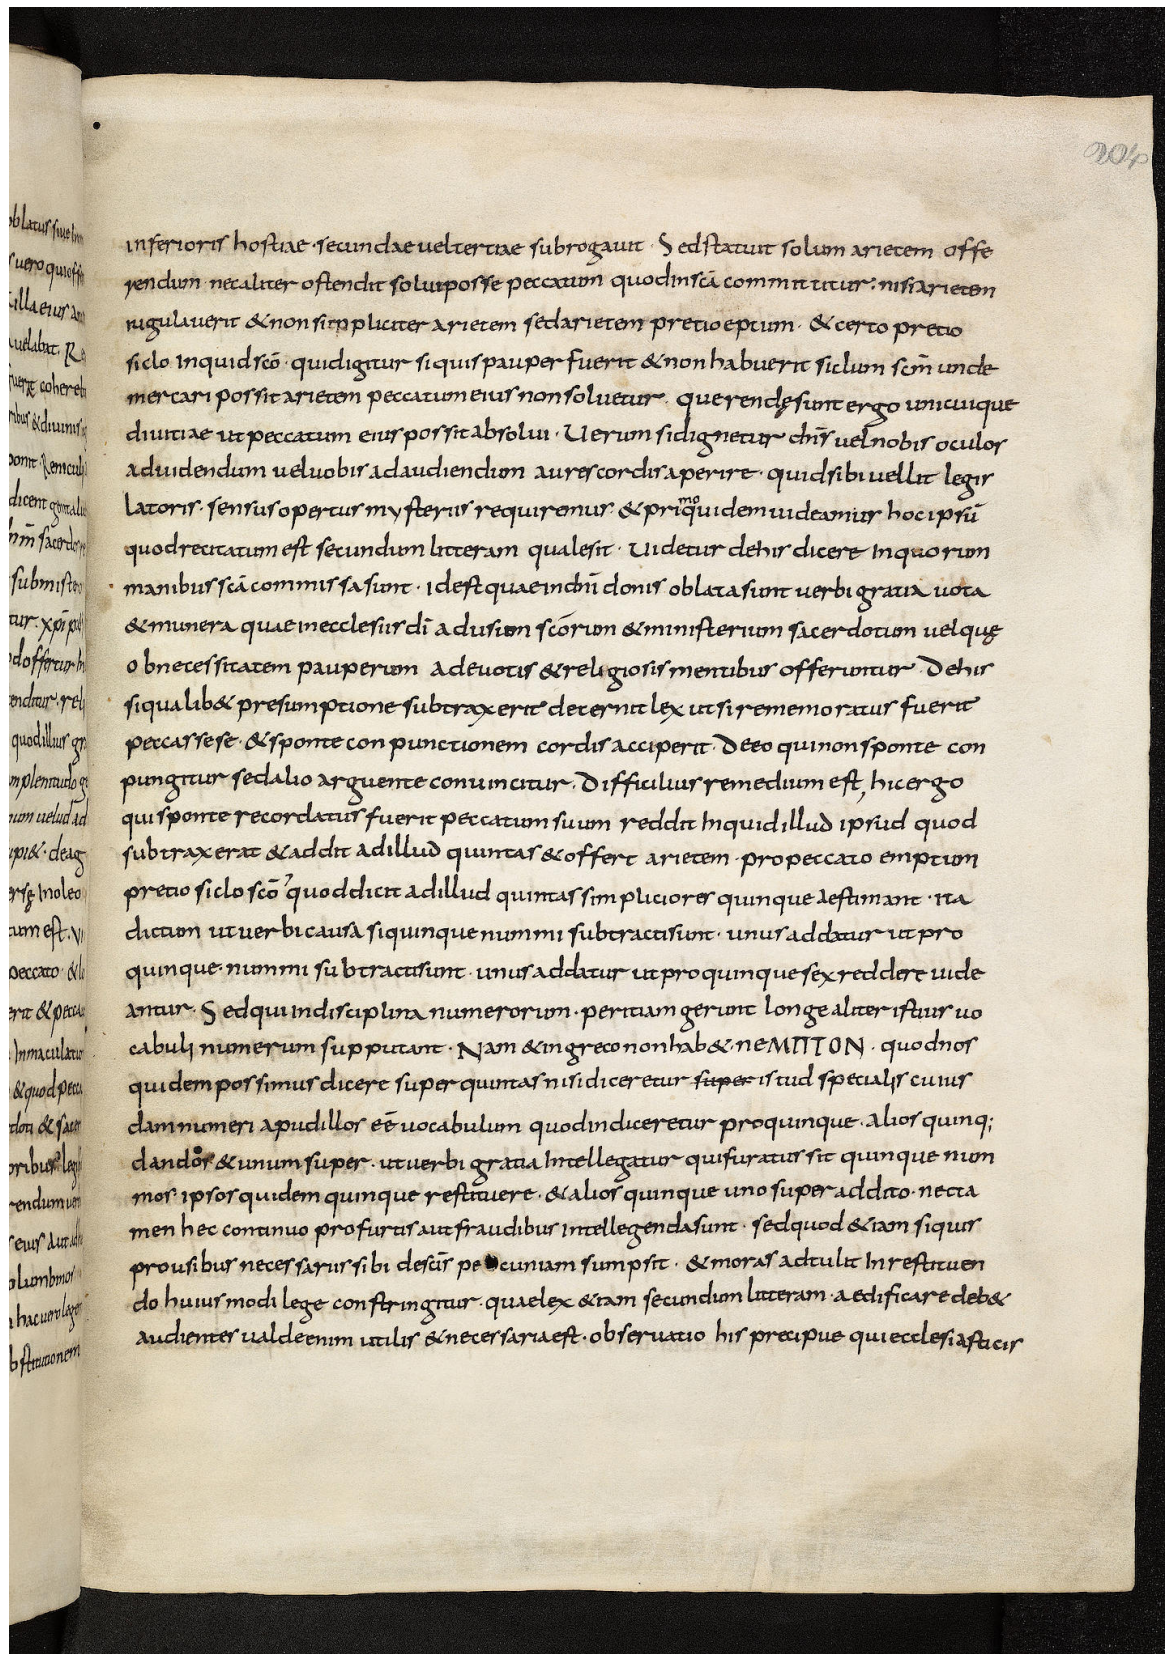 204
inferioris hostiae · secundae uel tertiae subrogauit · Sed statuit solum arietem offe
rendum · nec aliter ostendit solui posse peccatum quod in scā committitur : nisi arietem
iugulauerit & non simpliciter arietem sed arietem pretio eptum · & certo pretio
siclo inquid scō · quid igitur si quis pauper fuerit & non habuerit siclum scm̄ unde
mercari possit arietem peccatum eius non soluetur · querendę sunt ergo unicuique
diuitiae ut peccatum eius possit absolui · Uerum si dignetur dn̄s uel nobis oculos
ad uidendum uel uobis ad audiendum aures cordis aperire · quid sibi uellit legis
latoris · sensus opertus mysteriis requiremus · & primo quidem uideamus hoc ipsū
quod recitatum est secundum litteram qualesit · Uidetur de his dicere in quorum
manibus scā commissa sunt · id est quae in dn̄i donis oblata sunt uerbi gratia uota
& munera quae in ecclesiis dī ad usum scōrum & ministerium sacerdotum uel quę
ob necessitatem pauperum a deuotis & religiosis mentibus offeruntur · De his
si qualib& presumptione subtraxerit decernit lex ut si rememoratus fuerit
peccasse se · & sponte conpunctionem cordis acciperit · De eo qui non sponte con
pungitur sed alio arguente conuincitur · Difficilius remedium est, hic ergo
qui sponte recordatus fuerit peccatum suum reddit inquid illud ipsud quod
subtraxerat & addit ad illud quintas & offert arietem · pro peccato emptum
pretio siclo scō quod dicit ad illud quintas simpliciores quinque aestimant · ita
dictum ut uerbi causa si quinque nummi subtracti sunt · unus addatur ut pro
quinque · nummi subtracti sunt · unus addatur ut pro quinque sex reddere uide
antur · Sed qui in disciplina numerorum · peritiam gerunt longe aliter istius uo
cabuli numerum supputant · Nam & in greco non hab& · neMΠΤΟΝ · quod nos
quidem possimus dicere super quintas nisi diceretur super istud specialis cuius
dam numeri apud illos eē uocabulum quod indiceretur pro quinque · alios quinq;
dandos & unum super · ut uerbi gratia intellegatur qui furatus sit quinque num
mos · ipsos quidem quinque restituere · & alios quinque uno super addito · nec ta
men hec continuo pro furtis aut fraudibus intellegenda sunt · sed quod & iam si quis
pro usibus necessariis sibi de scīs pecuniam sumpsit · & moras adtulit in restituen
do huius modi lege constringitur · quae lex & iam secundum litteram · aedificare deb&
audientes ualde enim utilis & necessaria est · obseruatio his precipue qui ecclesiasticis